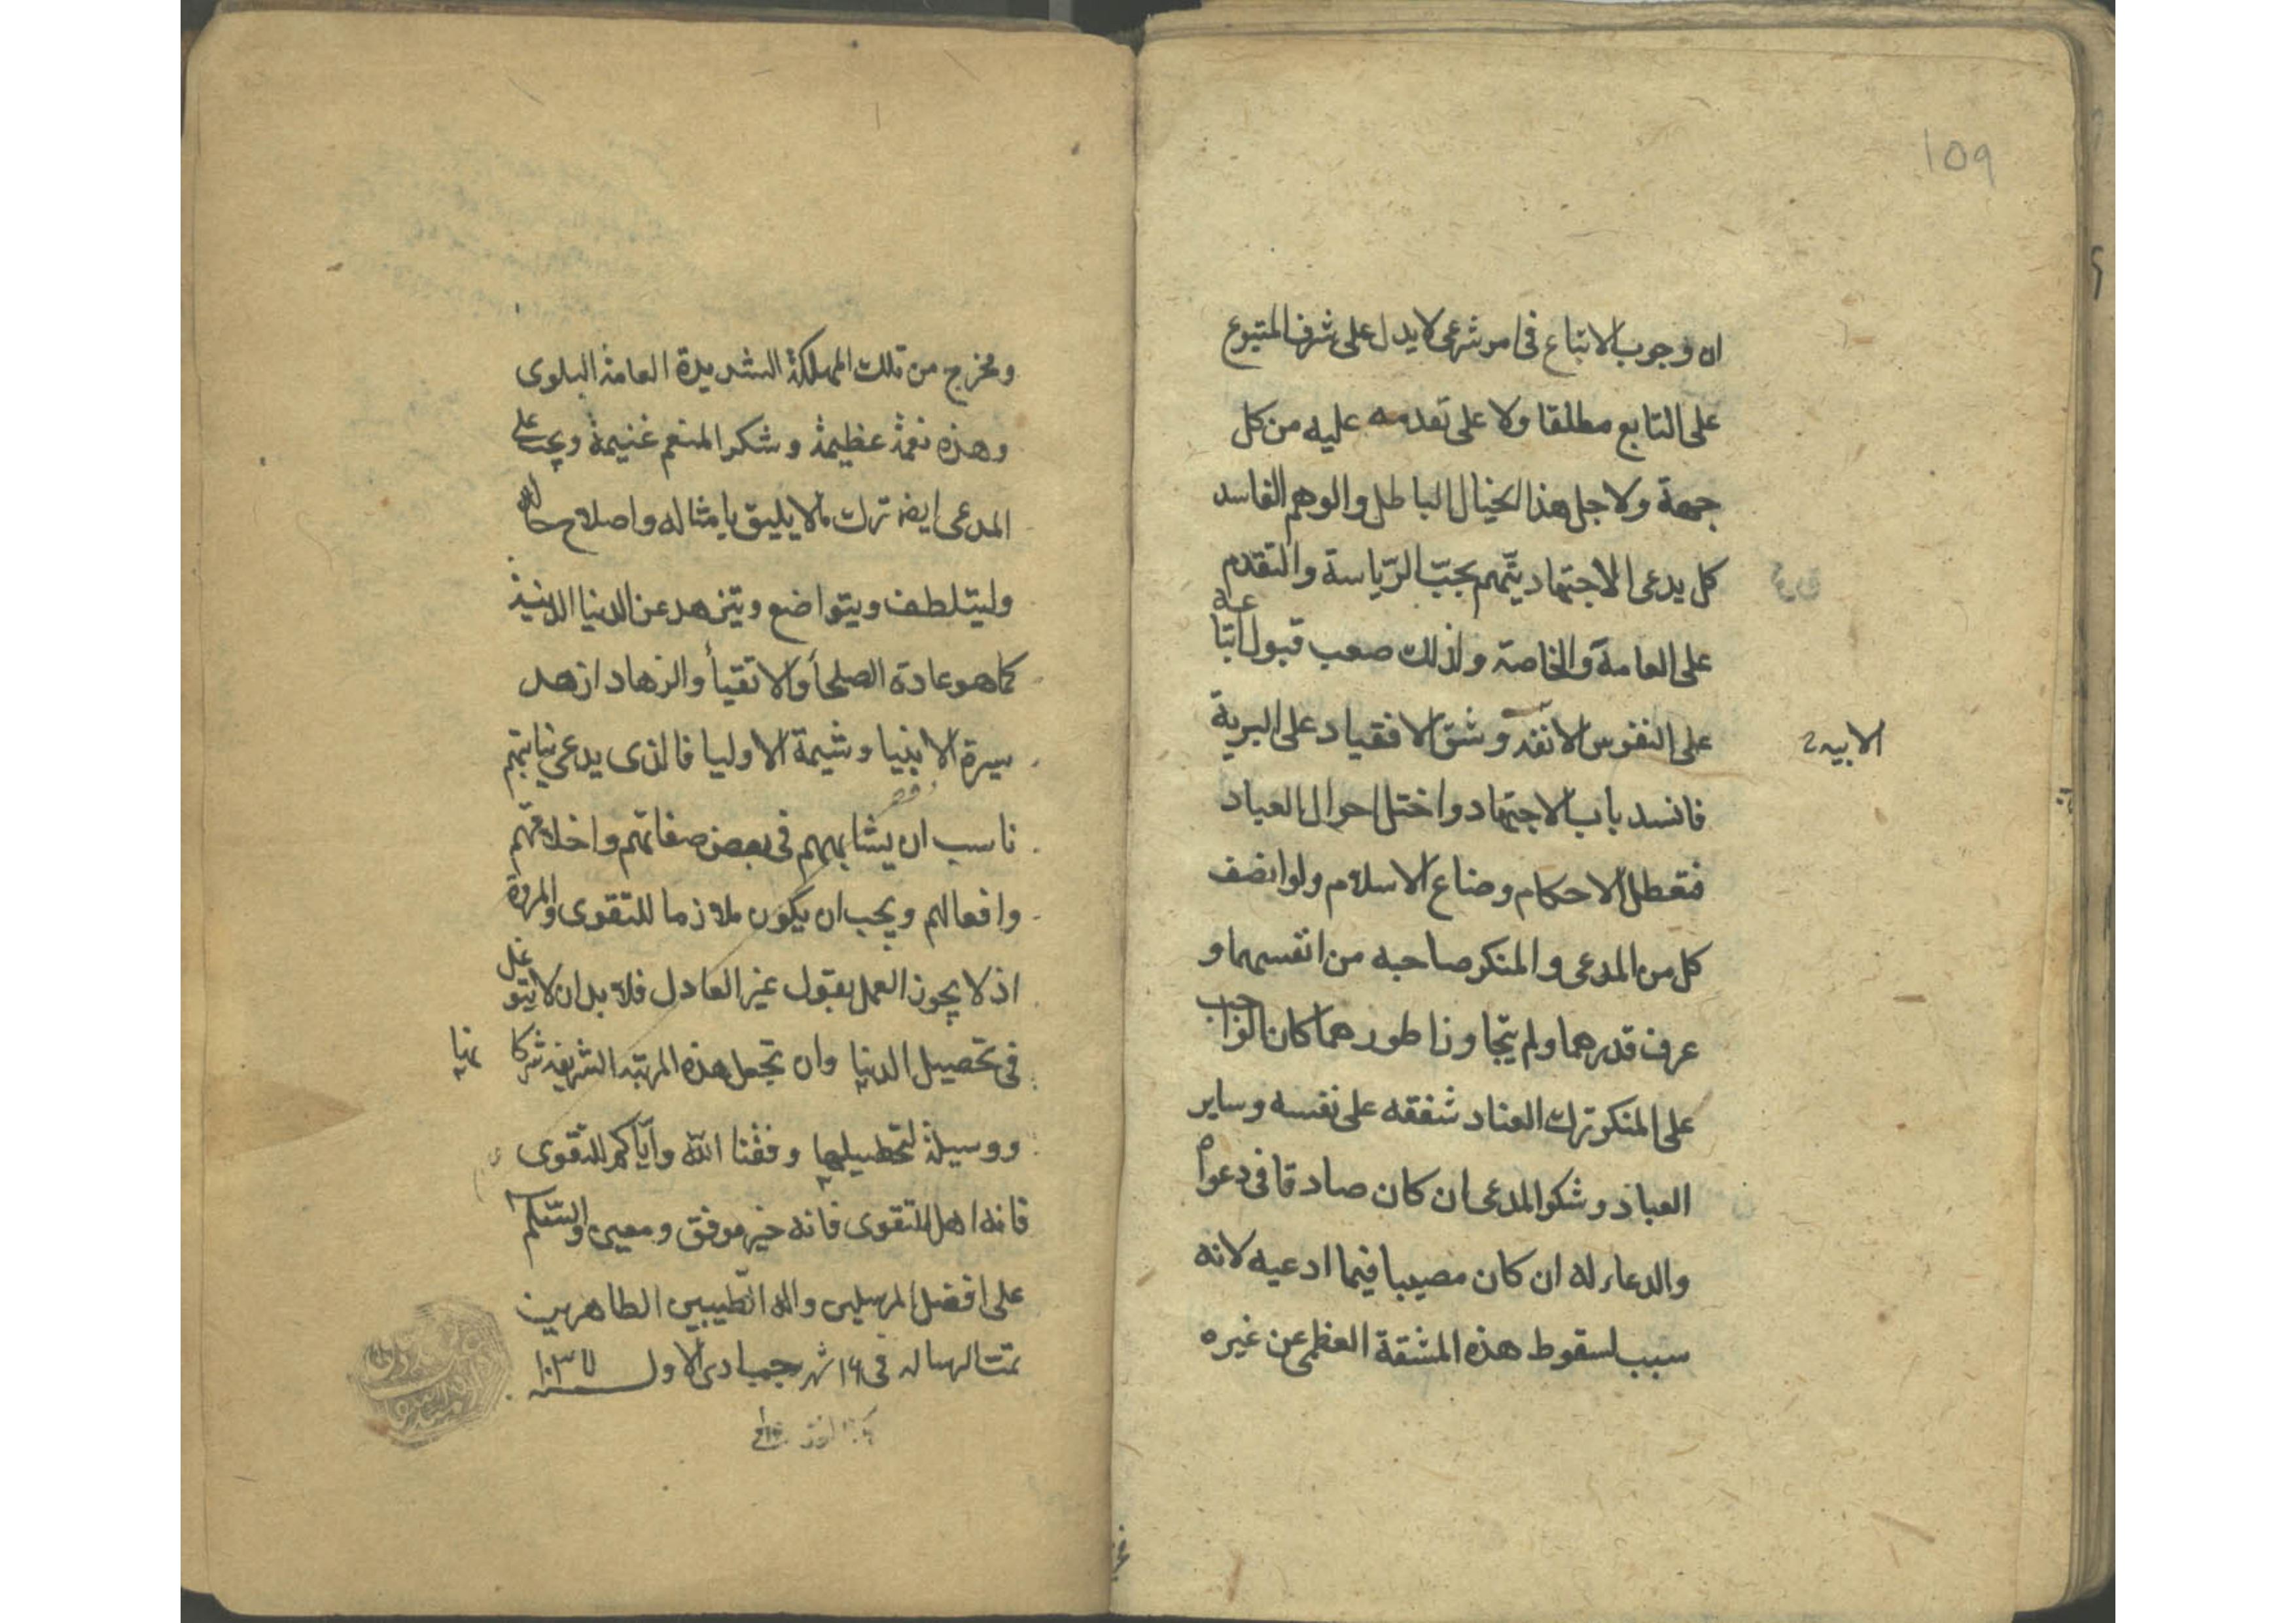 109
ان وجوب الاتباع فی امر شرعی لا يدل علی شرف المتبوع
علی التابع مطلقا ولا علی تقدمه علیه من كل
جهة ولاجل هذا الخيال الباطل والوهم الفاسد
كل يدعی الاجتهاد يتّهم بحبّ الرّياسة والتقدم
علی العامة والخاصة ولذلك صعب قبول اتباعه
علی النفوس الانفة وشق الانقياد علی البرية
الابيه
فانسد باب الاجتهاد واختل احوال العباد
فتعطل الاحكام وضاع الاسلام ولو انصف
كل من المدعی والمنكر صاحبه من انفسهما و
عرف قدرهما ولم يتجاوزا طورهما كان الواجب
علی المنكر ترك العناد شفقه علی نفسه وساير
العباد وشكر المدعی ان كان صادقا فی دعواه
والدعاء له ان كان مصيبا فيما ادعيه لانه
سبب لسقوط هذه المشقة العظمی عن غيره
ومخرج من تلك المهلكة الشديدة العامة البلوی
وهذه نعمة عظيمة وشكر المنعم غنيمة ويجب علی
المدعی ايضا ترك ما لا يليق بامثاله واصلاح حاله
وليتلطف ويتواضع ويتزهد عن الدنيا الدنية
كما هو عادة الصلحأ والاتقيأ والزهاد اذ هذ
سيرة الانبيا وشيمة الاوليا فالذی يدعی نيابتهم
ناسب ان يشابههم فی بعض صفاتهم واخلاقهم
وافعالهم ويجب ان يكون ملازما للتقوی والمروة
اذ لا يجوز العمل بقول غير العادل فلا بد ان لا يتوغل
فی تحصيل الدنيا وان تجعل هذه المرتبة الشريفة شركا
ووسيلة لتحصيلها وفقنا الله وايّاكم للتقوی
فانه اهل للتقوی فانه خير موفق ومعين والسلم
علی افضل المرسلين واله الطّيبين الطاهرين
تمت الرساله فی ١٦ شهر جمادی الاول سنه ١٠٣٧